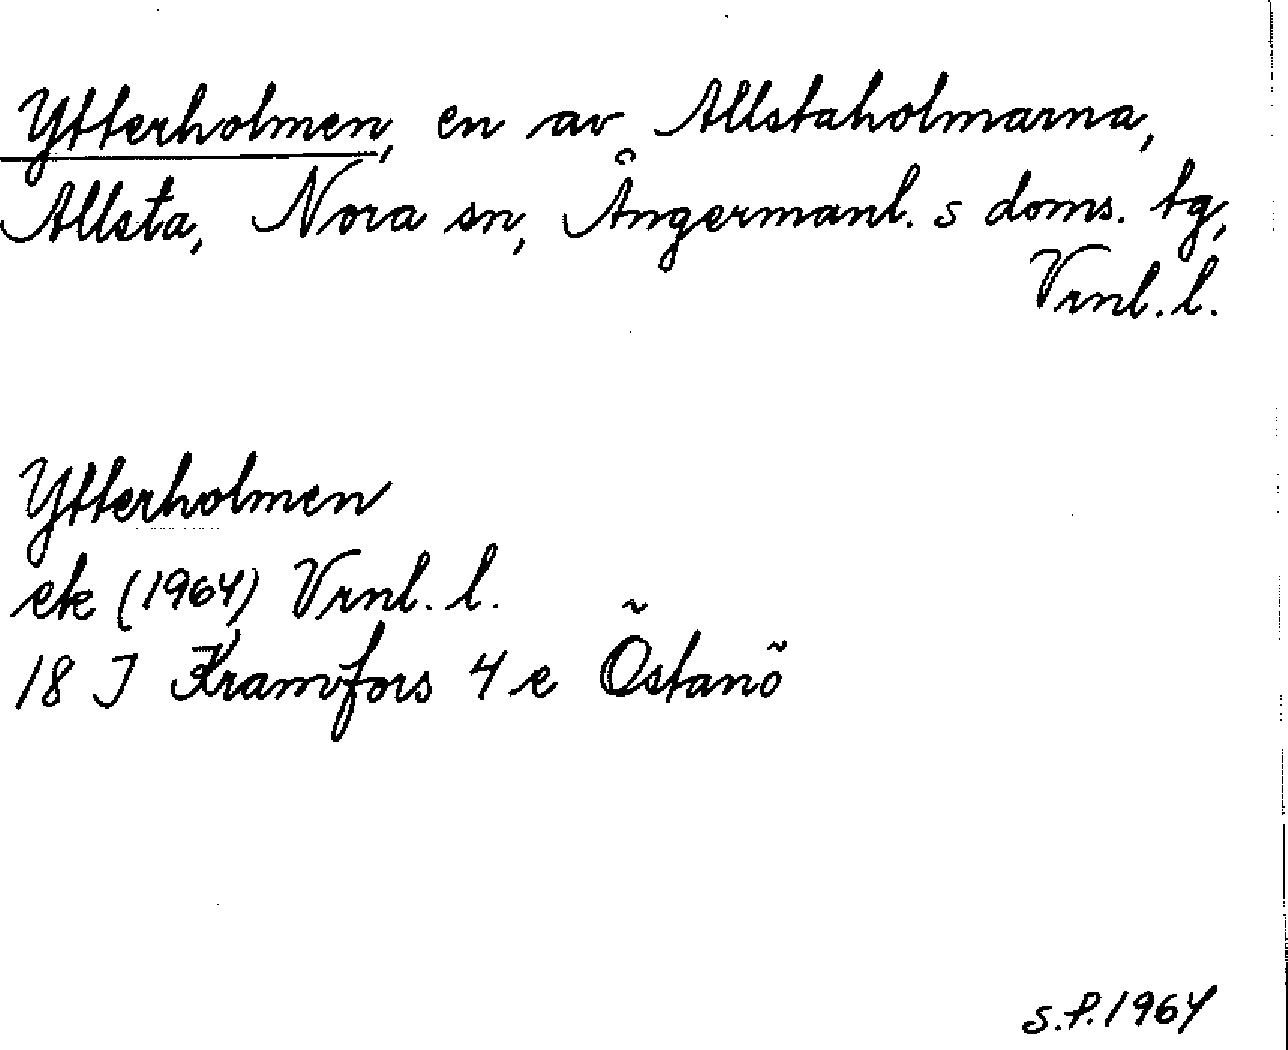 Ytterholmen, en av Allstaholmarna,
Allsta, Nora sn, Ångermanl. s doms. tg,
Vrnl. l.
Ytterholmen
ek (1964) Vrnl. l.
18 J Kramfors 4 e Östanö
S.P. 1964